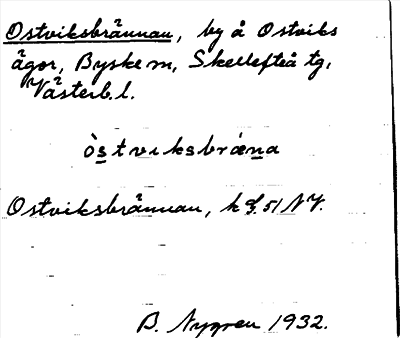 Ostviksbrännan, by å Ostviks
ägor, Byske sn, Skellefteå tg,
Västerb. l.
òstviksbræna
Ostviksbrännan, k 51 NV.
B. Nygren 1932.